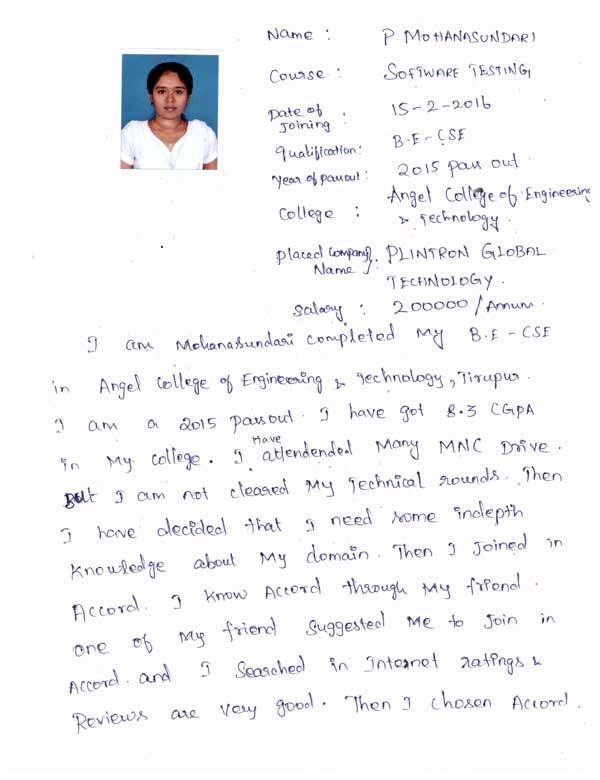 Name : P. MOHANASUNDARI
Course : SOFTWARE TESTING
Date of Joining : 15-2-2016
Qualification: B.E-CSE
Year of passout : 2015 pass out
College : Angel College of Engineering & Technology.
Placed Company Name : PLINTRON GLOBAL TECHNOLOGY.
Salary : 200000 / Annum.
I am Mohanasundari completed My B.E - CSE
in Angel College of Engineering & Technology, Tirupur.
I am a 2015 passout. I have got 8.3 CGPA
in My college. I Have attendended Many MNC Drive.
But I am not cleared My Technical rounds. Then
I have decided that I need some indepth
Knowledge about My domain. Then I Joined in
Accord. I know Accord through My friend.
One of My friend suggested Me to Join in
Accord. and I Searched in Internet ratings &
Reviews are very good. Then I chosen Accord.